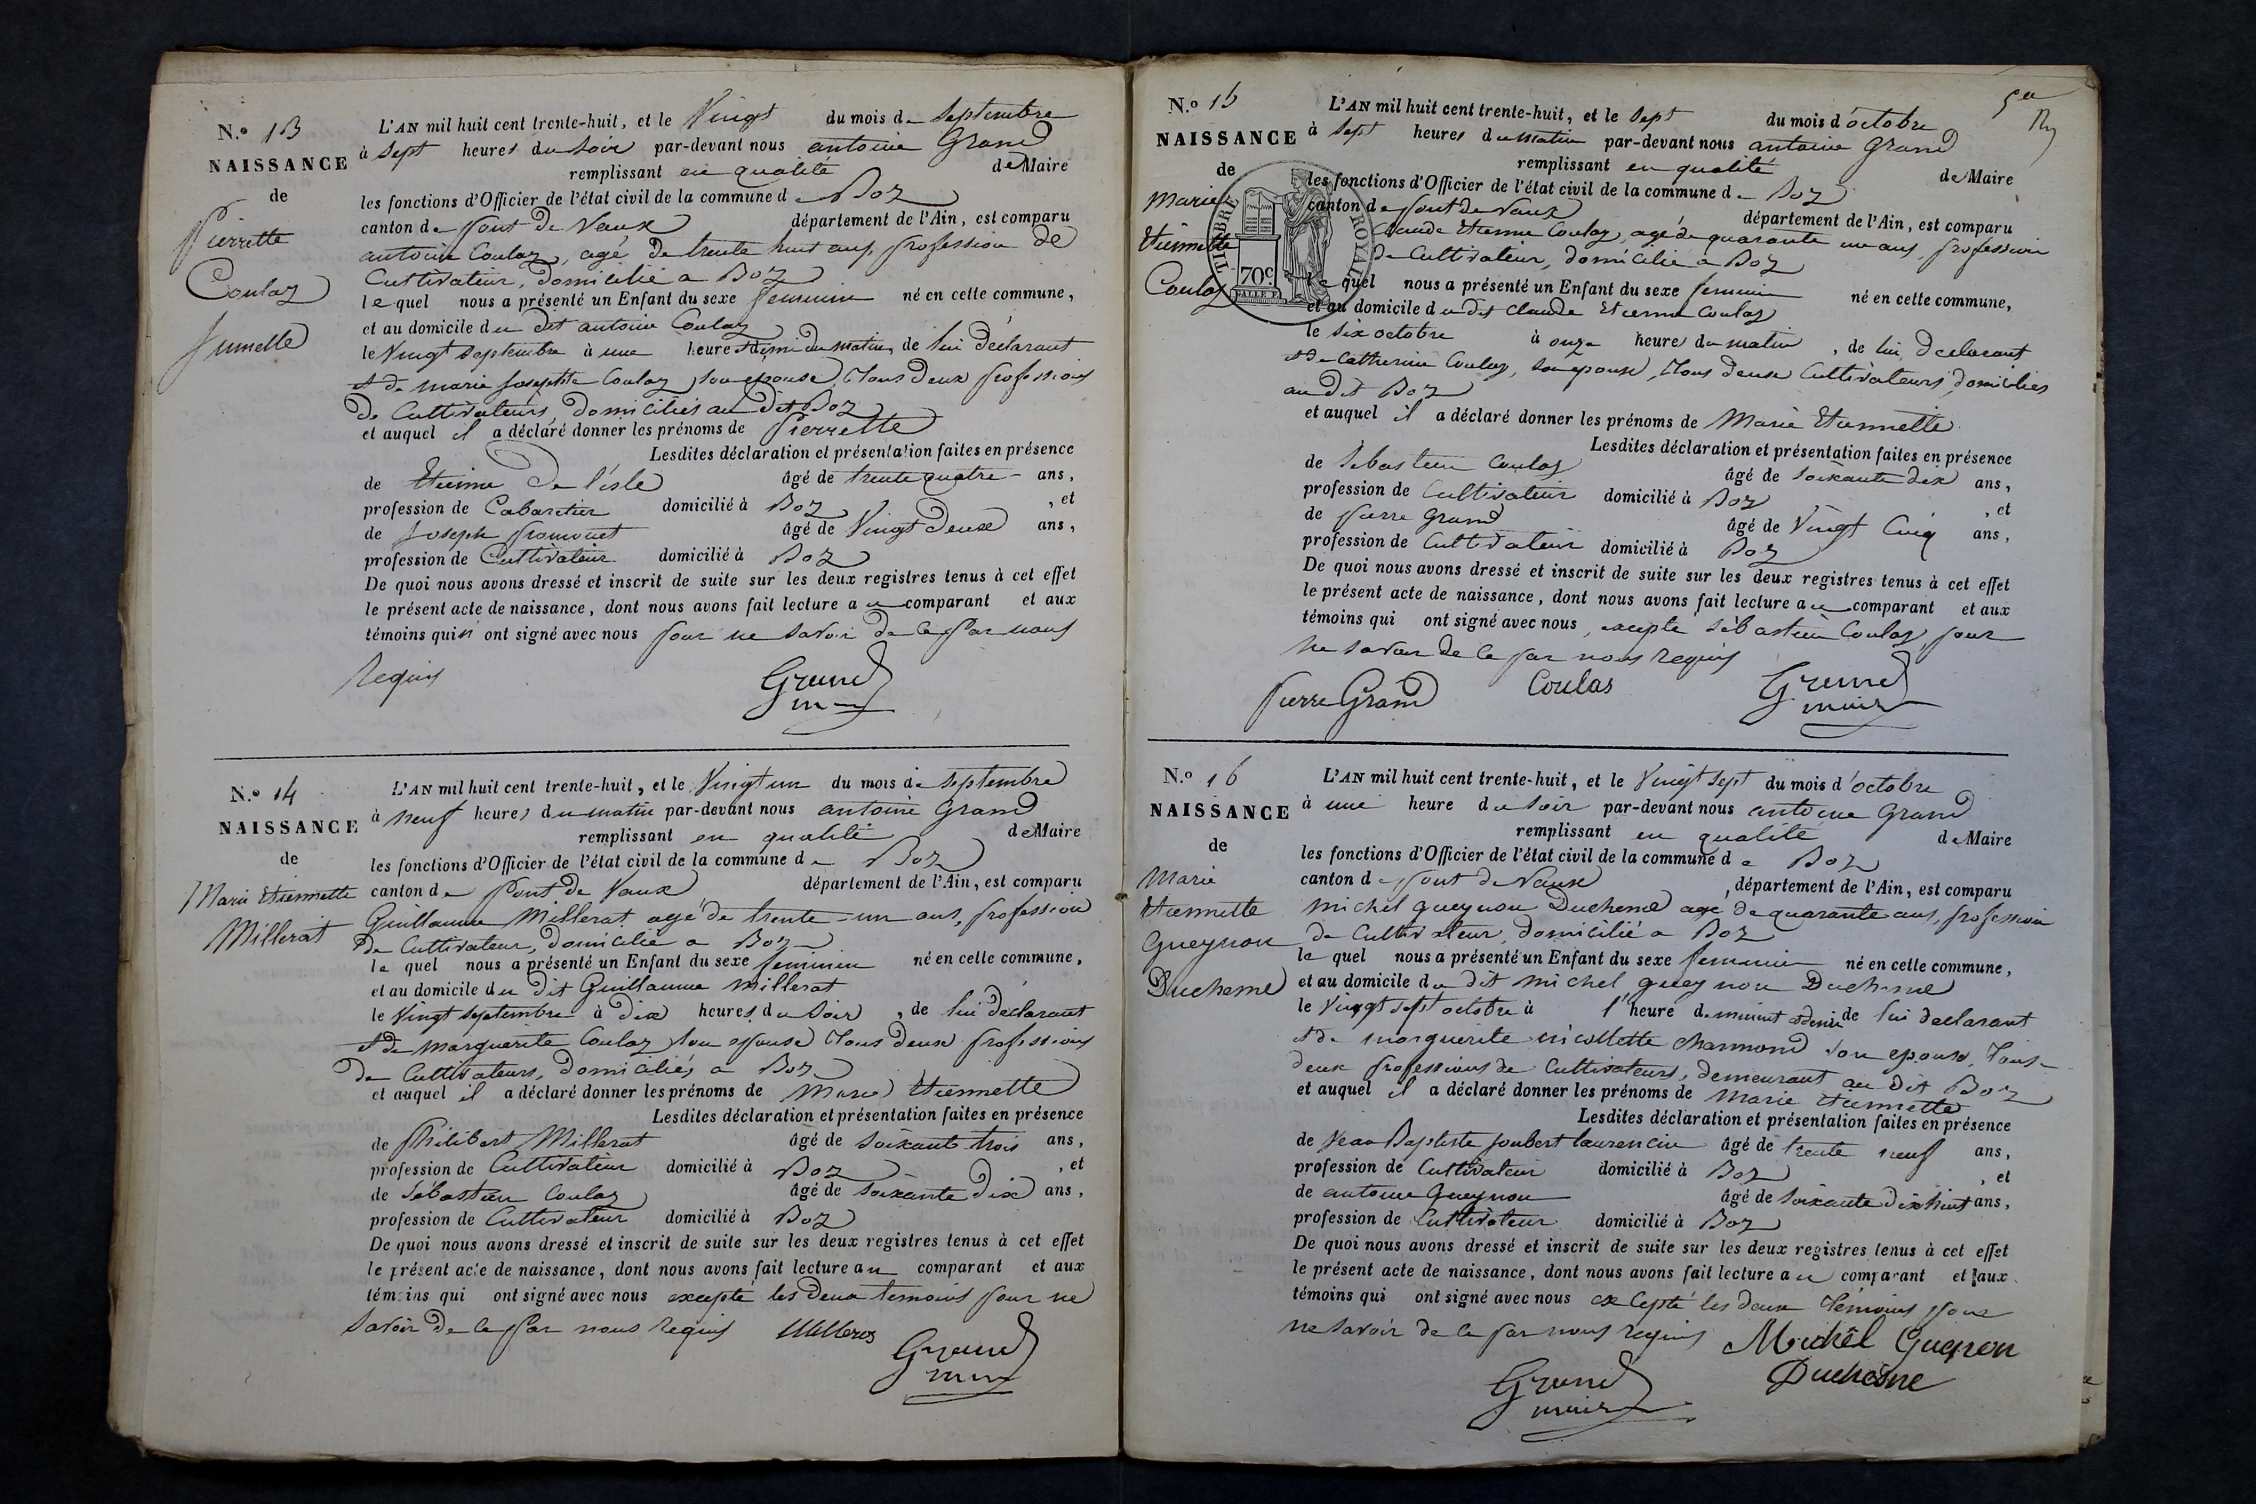 N.º 13
NAISSANCE
de
Pierrette
Coulaz
Jumelle
L'AN mil huit cent trente-huit, et le Vingt du mois de Septembre
à Sept heures du Soir par-devant nous antoine Grand
remplissant en qualité de Maire
les fonctions d'Officier de l'état civil de la commune de Boz
canton de pont de Vaux département de l'Ain, est comparu
antoine Coulaz, agé de trente huit ans, profession de
Cultivateur, domicilié a Boz
lequel nous a présenté un Enfant du sexe feminin né en cette commune,
et au domicile du dit antoine Coulaz
le Vingt Septembre à une heure et demi du matin, de lui déclarant
et de marie Josephte Coulaz son epouse, Tous deux professions
de Cultivateurs, domiciliés au dit Boz
et auquel il a déclaré donner les prénoms de Pierrette
Lesdites déclaration et présentation faites en présence
de Etienne De l'isle âgé de trente quatre ans,
profession de Cabaretier domicilié à Boz, et
de Joseph âgé de Vingt Deux ans,
profession de Cultivateur domicilié à Boz
De quoi nous avons dressé et inscrit de suite sur les deux registres tenus à cet effet
le présent acte de naissance, dont nous avons fait lecture au comparant et aux
témoins qui n'ont signé avec nous pour ne Savoir de ce par nous
Requis
Grand
maire
N.º 14
NAISSANCE
de
Marie Etiennette
Millerat
L'AN mil huit cent trente-huit, et le Vingt un du mois de Septembre
à neuf heures du matin par-devant nous antoine Grand
remplissant en qualité de Maire
les fonctions d'Officier de l'état civil de la commune de Boz
canton de Pont de Vaux département de l'Ain, est comparu
Guillaume Millerat agé de trente-un ans, profession
de Cultivateur, domicilié a Boz
lequel nous a présenté un Enfant du sexe feminin né en cette commune,
et au domicile du dit Guillaume Millerat
le Vingt Septembre à Dix heures du Soir, de lui déclarant
et de marguerite Coulaz son epouse Tous deux professions
de Cultivateurs, domiciliés a Boz
et auquel il a déclaré donner les prénoms de Marie Etiennette
Lesdites déclaration et présentation faites en présence
de Philibert Millerat âgé de Soixante trois ans,
profession de Cultivateur domicilié à Boz, et
de Sébastien Coulaz âgé de Soixante Dix ans,
profession de Cultivateur domicilié à Boz
De quoi nous avons dressé et inscrit de suite sur les deux registres tenus à cet effet
le présent acte de naissance, dont nous avons fait lecture au comparant et aux
témoins qui ont signé avec nous excepté les Deux temoins pour ne
Savoir De ce par nous Requis
Grand
maire
5e
N.º 15
NAISSANCE
de
Marie
Etiennette
Coulaz
TIMBRE ROYAL
70c
L'AN mil huit cent trente-huit, et le Sept du mois d'octobre
à Sept heures du matin par-devant nous antoine Grand
remplissant en qualité de Maire
les fonctions d'Officier de l'état civil de la commune de Boz
canton de pont de Vaux département de l'Ain, est comparu
Claude Etienne Coulaz, agé de quarante un ans, profession
de Cultivateur, domicilié a Boz
lequel nous a présenté un Enfant du sexe feminin né en cette commune,
et au domicile du dit Claude Etienne Coulaz
le Six octobre à onze heures du matin, de lui Déclarant
et de Catherine Coulaz, son epouse, Tous deux Cultivateurs, domiciliés
au dit Boz
et auquel il a déclaré donner les prénoms de Marie Etiennette
Lesdites déclaration et présentation faites en présence
de Sébastien Coulaz âgé de Soixante dix ans,
profession de Cultivateur domicilié à Boz, et
de pierre Grand âgé de Vingt Cinq ans,
profession de Cultivateur domicilié à Boz
De quoi nous avons dressé et inscrit de suite sur les deux registres tenus à cet effet
le présent acte de naissance, dont nous avons fait lecture au comparant et aux
témoins qui ont signé avec nous, excepté Sébastien Coulaz, pour
ne Savoir de ce par nous Requis
Pierre Grand Coulas Grand
maire
N.º 16
NAISSANCE
de
Marie
Etiennette
Gueynon
Duchesne
L'AN mil huit cent trente-huit, et le Vingt Sept du mois d'octobre
à une heure du Soir par-devant nous antoine Grand
remplissant en qualité de Maire
les fonctions d'Officier de l'état civil de la commune de Boz
canton de pont de Vaux, département de l'Ain, est comparu
Michel Gueynon Duchesne agé de quarante ans, profession
de Cultivateur, domicilié a Boz
lequel nous a présenté un Enfant du sexe feminin né en cette commune,
et au domicile du dit Michel Gueynon Duchesne
le Vingt Sept octobre à l'heure de minuit et demie de lui declarant
et de marguerite nicollette Charmond son epouse, Tous
deux professions de Cultivateurs, demeurant au dit Boz
et auquel il a déclaré donner les prénoms de Marie Etiennette
Lesdites déclaration et présentation faites en présence
de Jean Baptiste Joubert laurencin âgé de trente neuf ans,
profession de Cultivateur domicilié à Boz, et
de antoine Gueynon âgé de Soixante dix huit ans,
profession de Cultivateur domicilié à Boz
De quoi nous avons dressé et inscrit de suite sur les deux registres tenus à cet effet
le présent acte de naissance, dont nous avons fait lecture au comparant et aux
témoins qui ont signé avec nous excepté les deux Témoins pour
ne Savoir de ce par nous requis Michêl Guegnon
Duchesne
Grand
maire